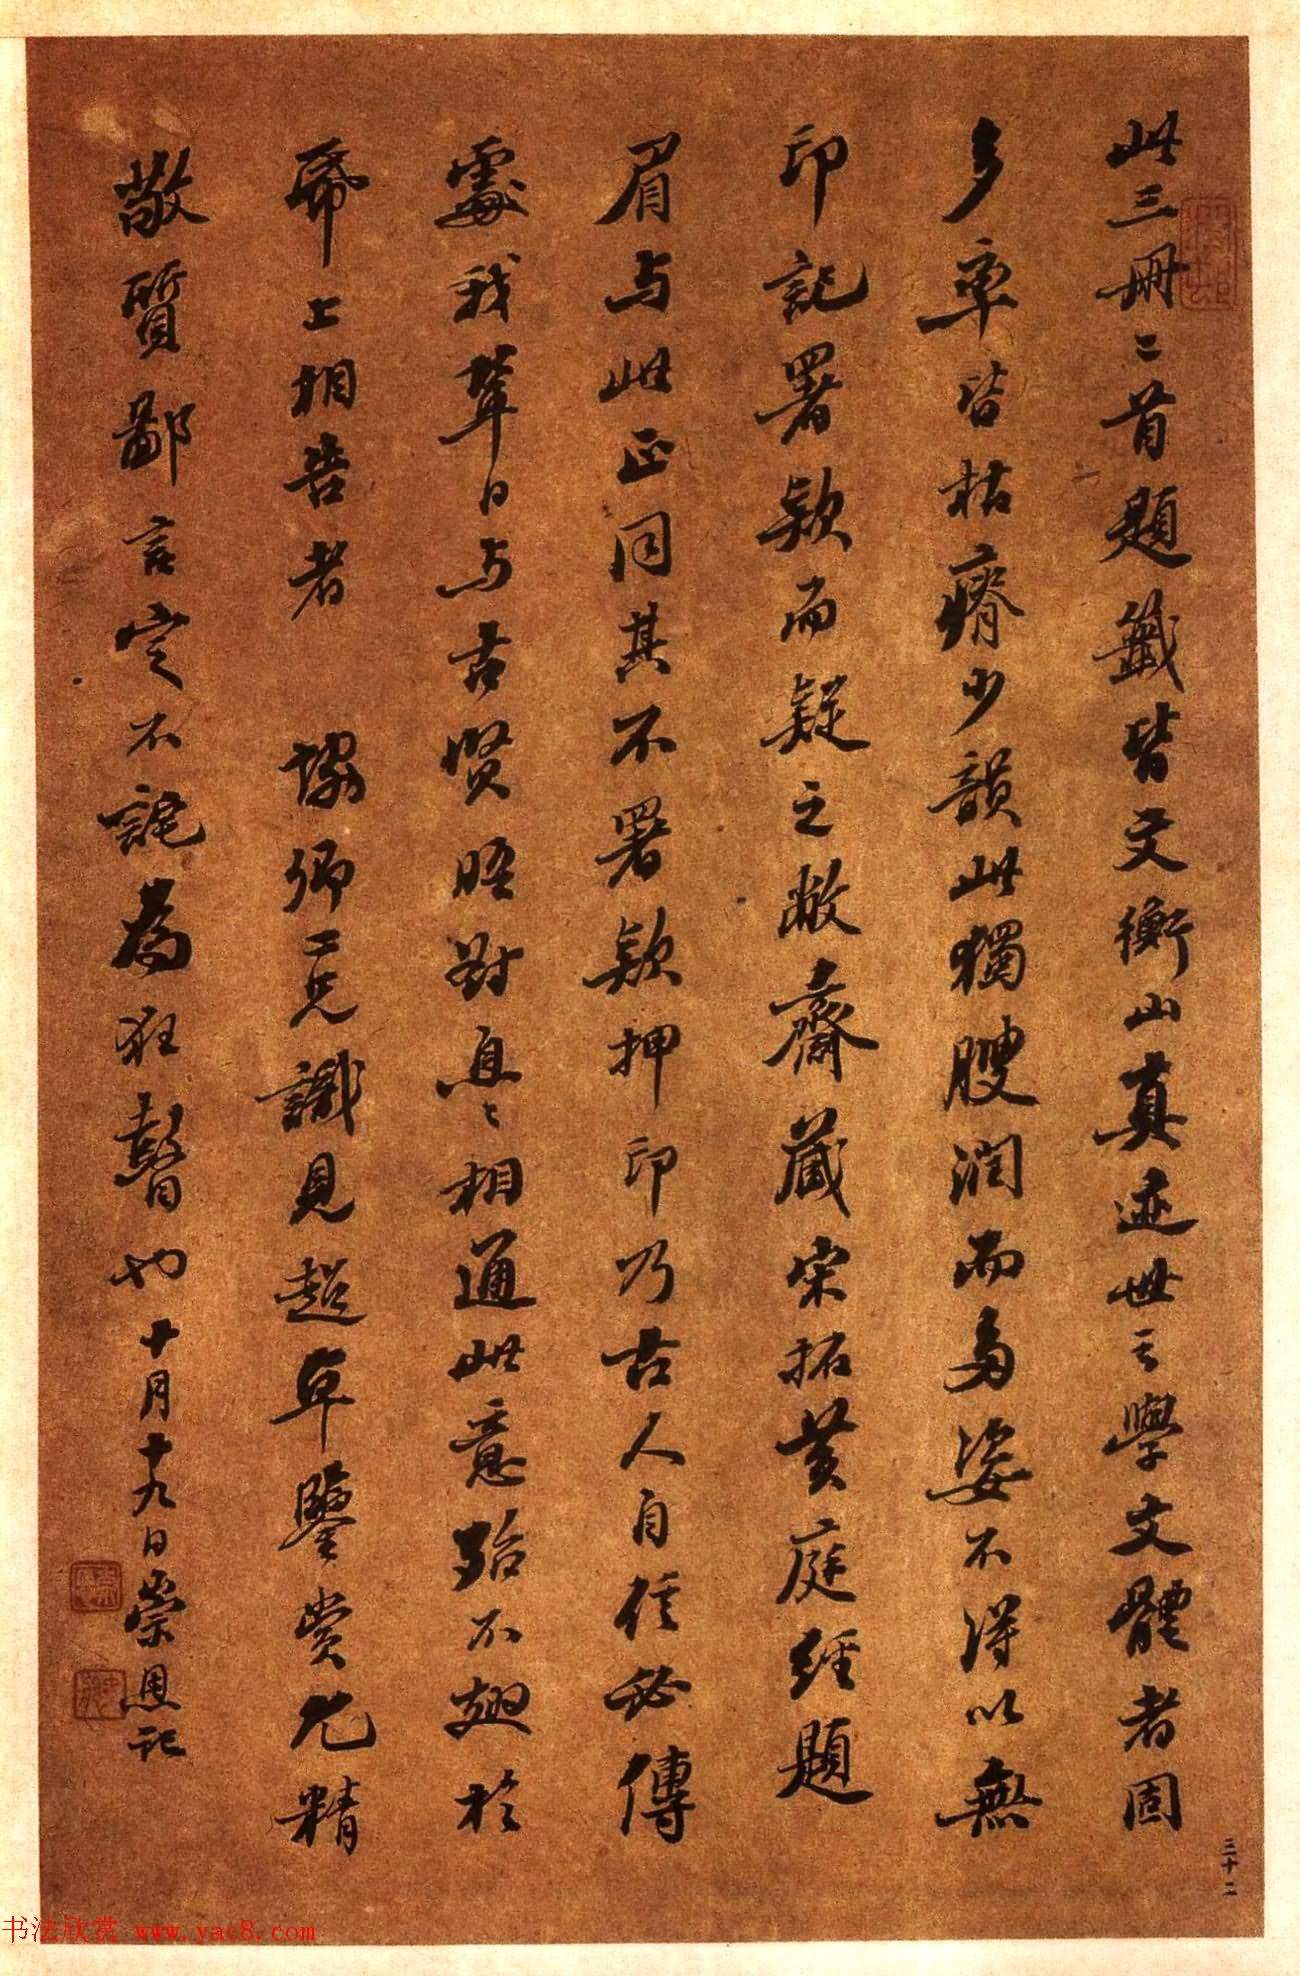 此三冊二首題籤皆文衡山真迹世之學文體者固
多率皆枯瘠少韻此獨腴潤而多姿不得以無
印記署款而疑之敝齋藏宋拓黃庭經題
眉与此正同其不署款押印乃古人自信必傳
處我輩日与古賢晤對息〻相通此意殆不翅於
帋上相告者 協卿二兄識見超卓鑒賞尤精
敬質鄙言定不詫為狂瞽也十月十九日崇恩記
三十二
书法欣赏 www.yac8.com